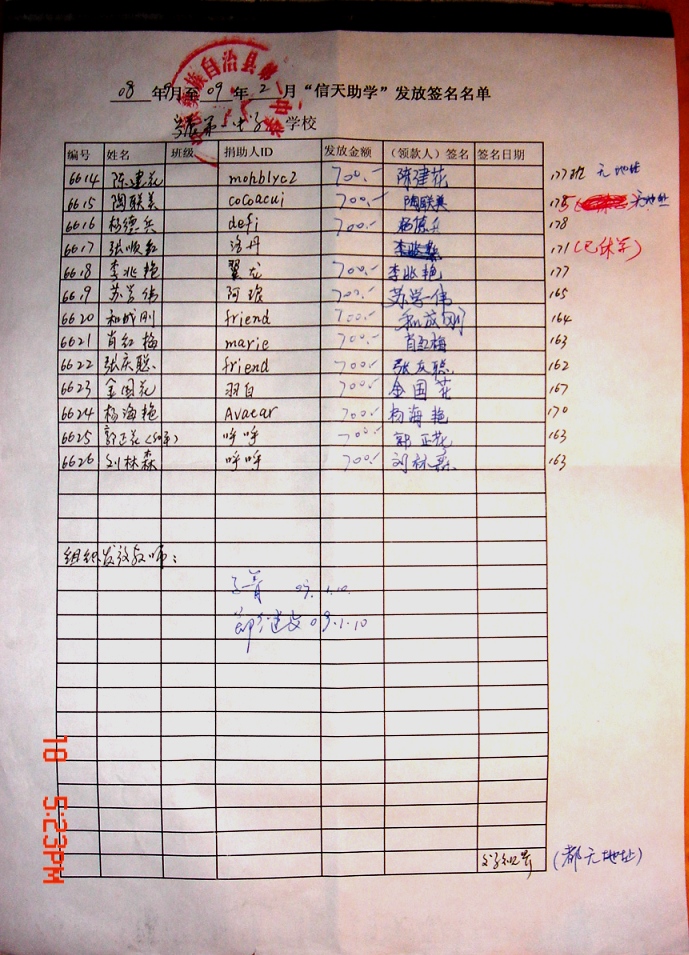 08年9月至09年2月“信天助学”发放签名名单
学校
编号 姓名 班级 捐助人ID 发放金额 （领款人）签名 签名日期
6614 陈建花 mohblyc2 700.- 陈建花 177班 无地址
6615 陶联美 cocoacui 700.- 陶联美 175 无地址
6616 杨德兵 defi 700.- 杨德兵 178
6617 张顺红 洛丹 171(已休学)
6618 李兆艳 翼龙 700.- 李兆艳 177
6619 苏学伟 阿琅 700.- 苏学伟 165
6620 和成刚 friend 700.- 和成刚 164
6621 肖红梅 marie 700.- 肖红梅 163
6622 张庆聪 friend 700.- 张庆聪 162
6623 金国花 羽白 700.- 金国花 167
6624 杨海艳 Avacar 700.- 杨海艳 170
6625 郭正花 呼呼 700.- 郭正花 163
6626 刘林森 呼呼 700.- 刘林森 163
组织发放教师：
09.1.10
09.1.10
(都无地址)
18 5:23PM